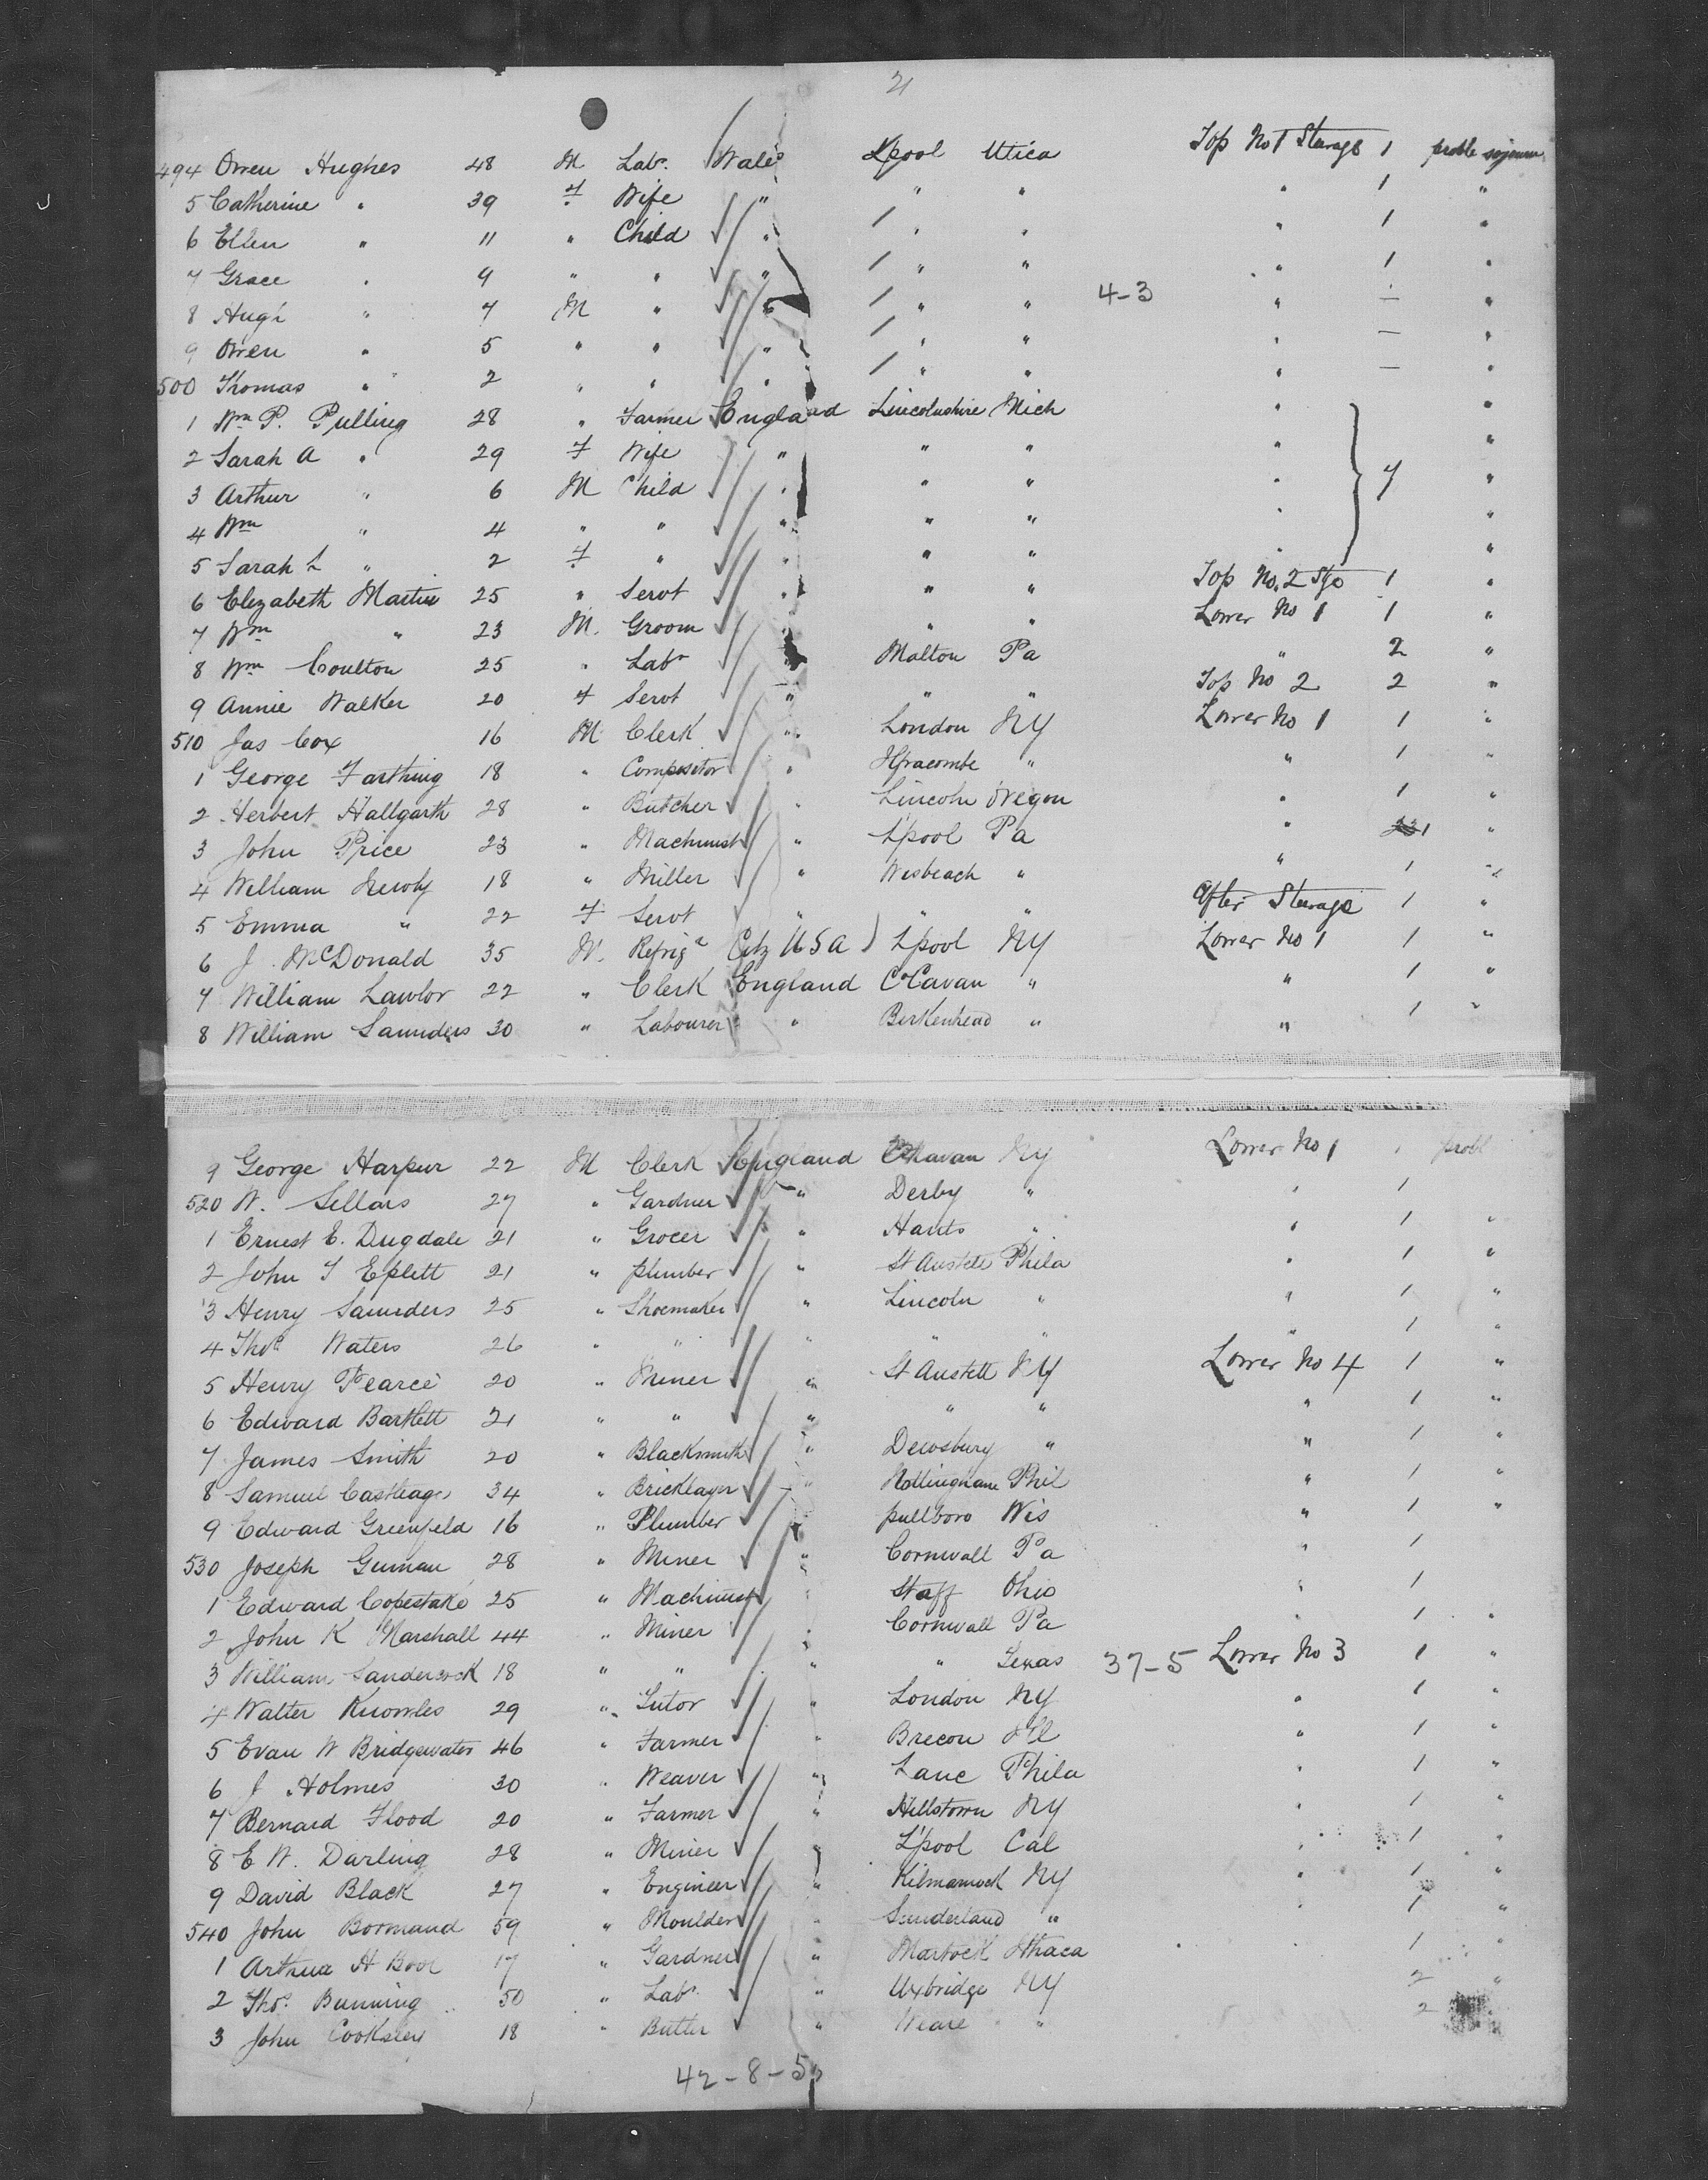 21
494 Owen Hughes 48 M Labr. Wales L'pool Utica Top No 1 Steerage 1 proble sojourn
5 Catherine " 39 F Wife " " " " 1 "
6 Ellen " 11 " Child " " " " 1 "
7 Grace " 9 " " " " " " 1 "
8 Hugh " 7 M " " " " 4-3 " — "
9 Owen " 5 " " " " " " — "
500 Thomas " 2 " " " " " " — "
1 Wm P. Pulling 28 " Farmer England Lincolnshire Mich " "
2 Sarah A " 29 F Wife " " " " "
3 Arthur " 6 M Child " " " " 7 "
4 Wm " 4 " " " " " " "
5 Sarah L " 2 F " " " " " "
6 Elizabeth Martin 25 " Servt " " " Top No. 2 Stge 1 "
7 Wm " 23 M. Groom " " " Lower No 1 1 "
8 Wm Coulton 25 " Labr " Malton Pa " 2 "
9 Annie Walker 20 F Servt " " " Top No 2 2 "
510 Jas Cox 16 M Clerk " London NY Lower No 1 1 "
1 George Farthing 18 " Compositor " Ilfracombe " " 1 "
2 Herbert Hallgarth 28 " Butcher " Lincoln Oregon " 1 "
3 John Price 23 " Machinist " L'pool Pa " 1 "
4 William Newby 18 " Miller " Wisbeach " " 1 "
5 Emma " 22 F Servt " " " After Steerage 1 "
6 J. McDonald 35 M. Refrigr Citz USA L'pool NY Lower No 1 1 "
7 William Lawlor 22 " Clerk England Co Cavan " " 1 "
8 William Saunders 30 " Labourer " Berkenhead " " 1 "
9 George Harpur 22 M Clerk England Cavan NY Lower No 1 1 probl
520 W. Sellars 27 " Gardner " Derby " " 1
1 Ernest E. Dugdale 21 " Grocer " Hants " " 1 "
2 John T Eplett 21 " plumber " St Austell Phila " 1 "
3 Henry Saunders 25 " Shoemaker " Lincoln " " 1 "
4 Thos Waters 26 " " " " " " 1 "
5 Henry Pearce 20 " Miner " St Austell NY Lower No 4 1 "
6 Edward Bartlett 21 " " " " " " 1 "
7 James Smith 20 " Blacksmith " Dewsbury " " 1 "
8 Samuel 34 " Bricklayer " Nottingham Phil " 1 "
9 Edward Greenfeld 16 " Plumber " pullboro Wis " 1 "
530 Joseph 28 " Miner " Cornwall Pa " 1
1 Edward Copestake 25 " Machinist " Staff Ohio " 1
2 John K Marshall 44 " Miner " Cornwall Pa " 1 "
3 William Sandercock 18 " " " " Texas 37-5 Lower No 3 1 "
4 Walter Knowles 29 " Tutor " London NY " 1 "
5 Evan W Bridgewater 46 " Farmer " Brecon Ill " 1 "
6 J Holmes 30 " Weaver " Lanc Phila " 1 "
7 Bernard Flood 20 " Farmer " Hillstown NY " 1 "
8 E W. Darling 28 " Miner " L'pool Cal " 1 "
9 David Black 27 " Engineer " Kilmarnock NY " 1 "
540 John Bormand 59 " Moulder " Sunderland " " 1 "
1 Arthur H 17 " Gardner " Martock Ithaca " 1 "
2 Thos. Bunning 50 " Labr " Uxbridge NY 2 "
3 John Cooksley 18 " Butler " Weare " 2
42-8-5